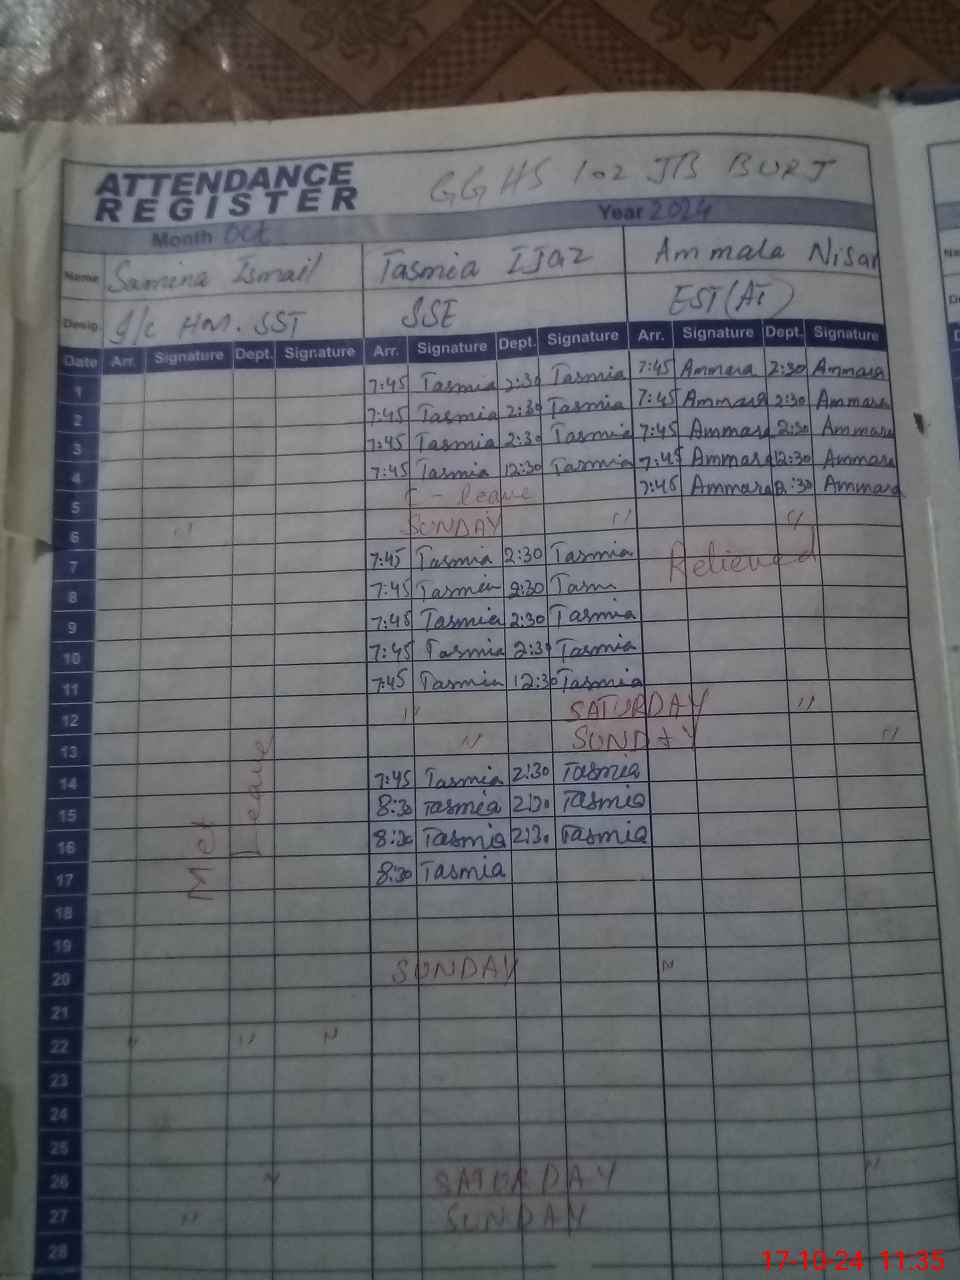 ATTENDANCE
REGISTER
GGHS 102 JB BURJ
Month Oct Year 2024
Name Samina Ismail Tasmia IJaz Ammala Nisar
Desig. I/c HM. SST SSE EST(AT)
Date Arr. Signature Dept. Signature Arr. Signature Dept. Signature Arr. Signature Dept. Signature
1 7:45 Tasmia 2:30 Tasmia 7:45 Ammara 2:30 Ammara
2 7:45 Tasmia 2:30 Tasmia 7:45 Ammara 2:30 Ammara
3 7:45 Tasmia 2:30 Tasmia 7:45 Ammara 2:30 Ammara
4 7:45 Tasmia 12:30 Tasmia 7:45 Ammara 12:30 Ammara
5 C - leave 7:45 Ammara 2:30 Ammara
6 " SUNDAY " "
7 7:45 Tasmia 2:30 Tasmia Relieved
8 7:45 Tasmia 2:30 Tasm
9 7:45 Tasmia 2:30 Tasmia
10 7:45 Tasmia 2:30 Tasmia
11 7:45 Tasmia 12:30 Tasmia
12 " SATURDAY "
13 " SUNDAY "
14 7:45 Tasmia 2:30 Tasmia
15 8:30 Tasmia 2:30 Tasmia
16 8:30 Tasmia 2:30 Tasmia
17 8:30 Tasmia
Leave
18
19
20 SUNDAY "
21
22 " " "
23
24
25
26 " SATURDAY "
27 " SUNDAY
28
17-10-24 11:35